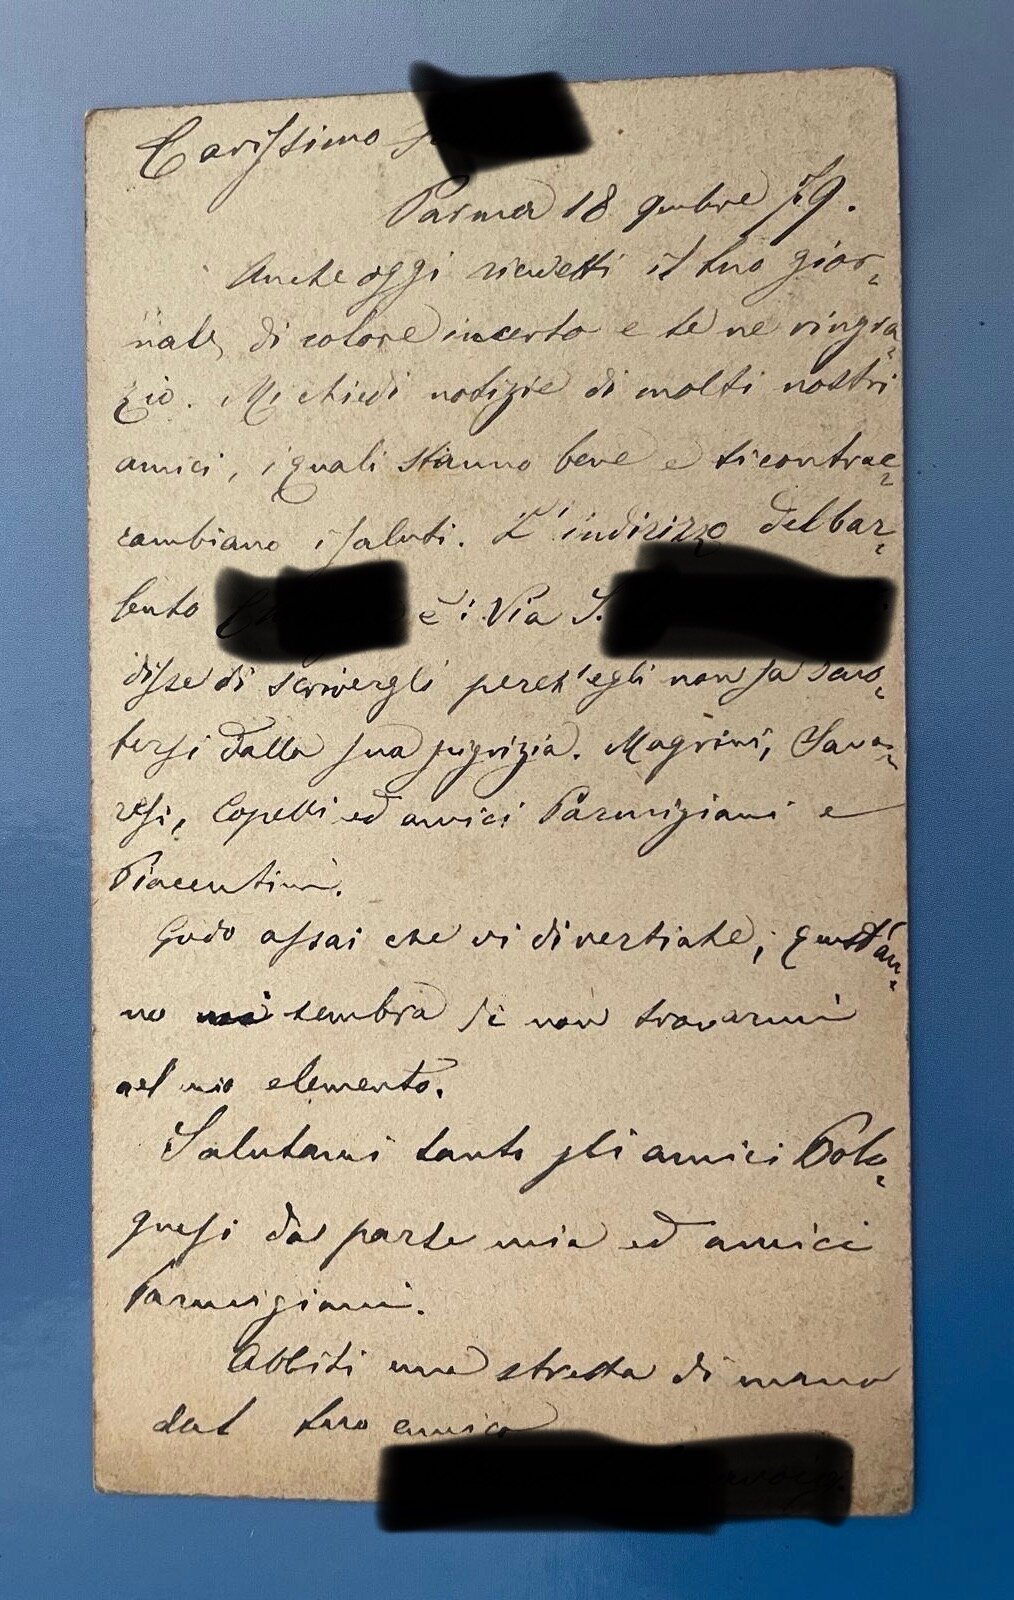 Carissimo
Parma 18 9mbre 79.
Anche oggi ricevetti il tuo gior-
nale, di colore incerto e te ne ringra-
zio. Mi chiedi notizie di molti nostri
amici, i quali stanno bene e ti contrac-
cambiano i saluti. L'indirizzo del bar-
buto è: Via S.
disse di scrivergli perch'egli non sa scuo-
tersi dalla sua pigrizia. Magrini, Sava-
resi, Copelli ed amici Parmigiani e
Piacentini.
Godo assai che vi divertiate; quest'an-
no mi sembra di non trovarmi
nel mio elemento.
Salutami tanto gli amici Bolo-
gnesi da parte mia ed amici
Parmigiani.
Abbiti una stretta di mano
dal tuo amico